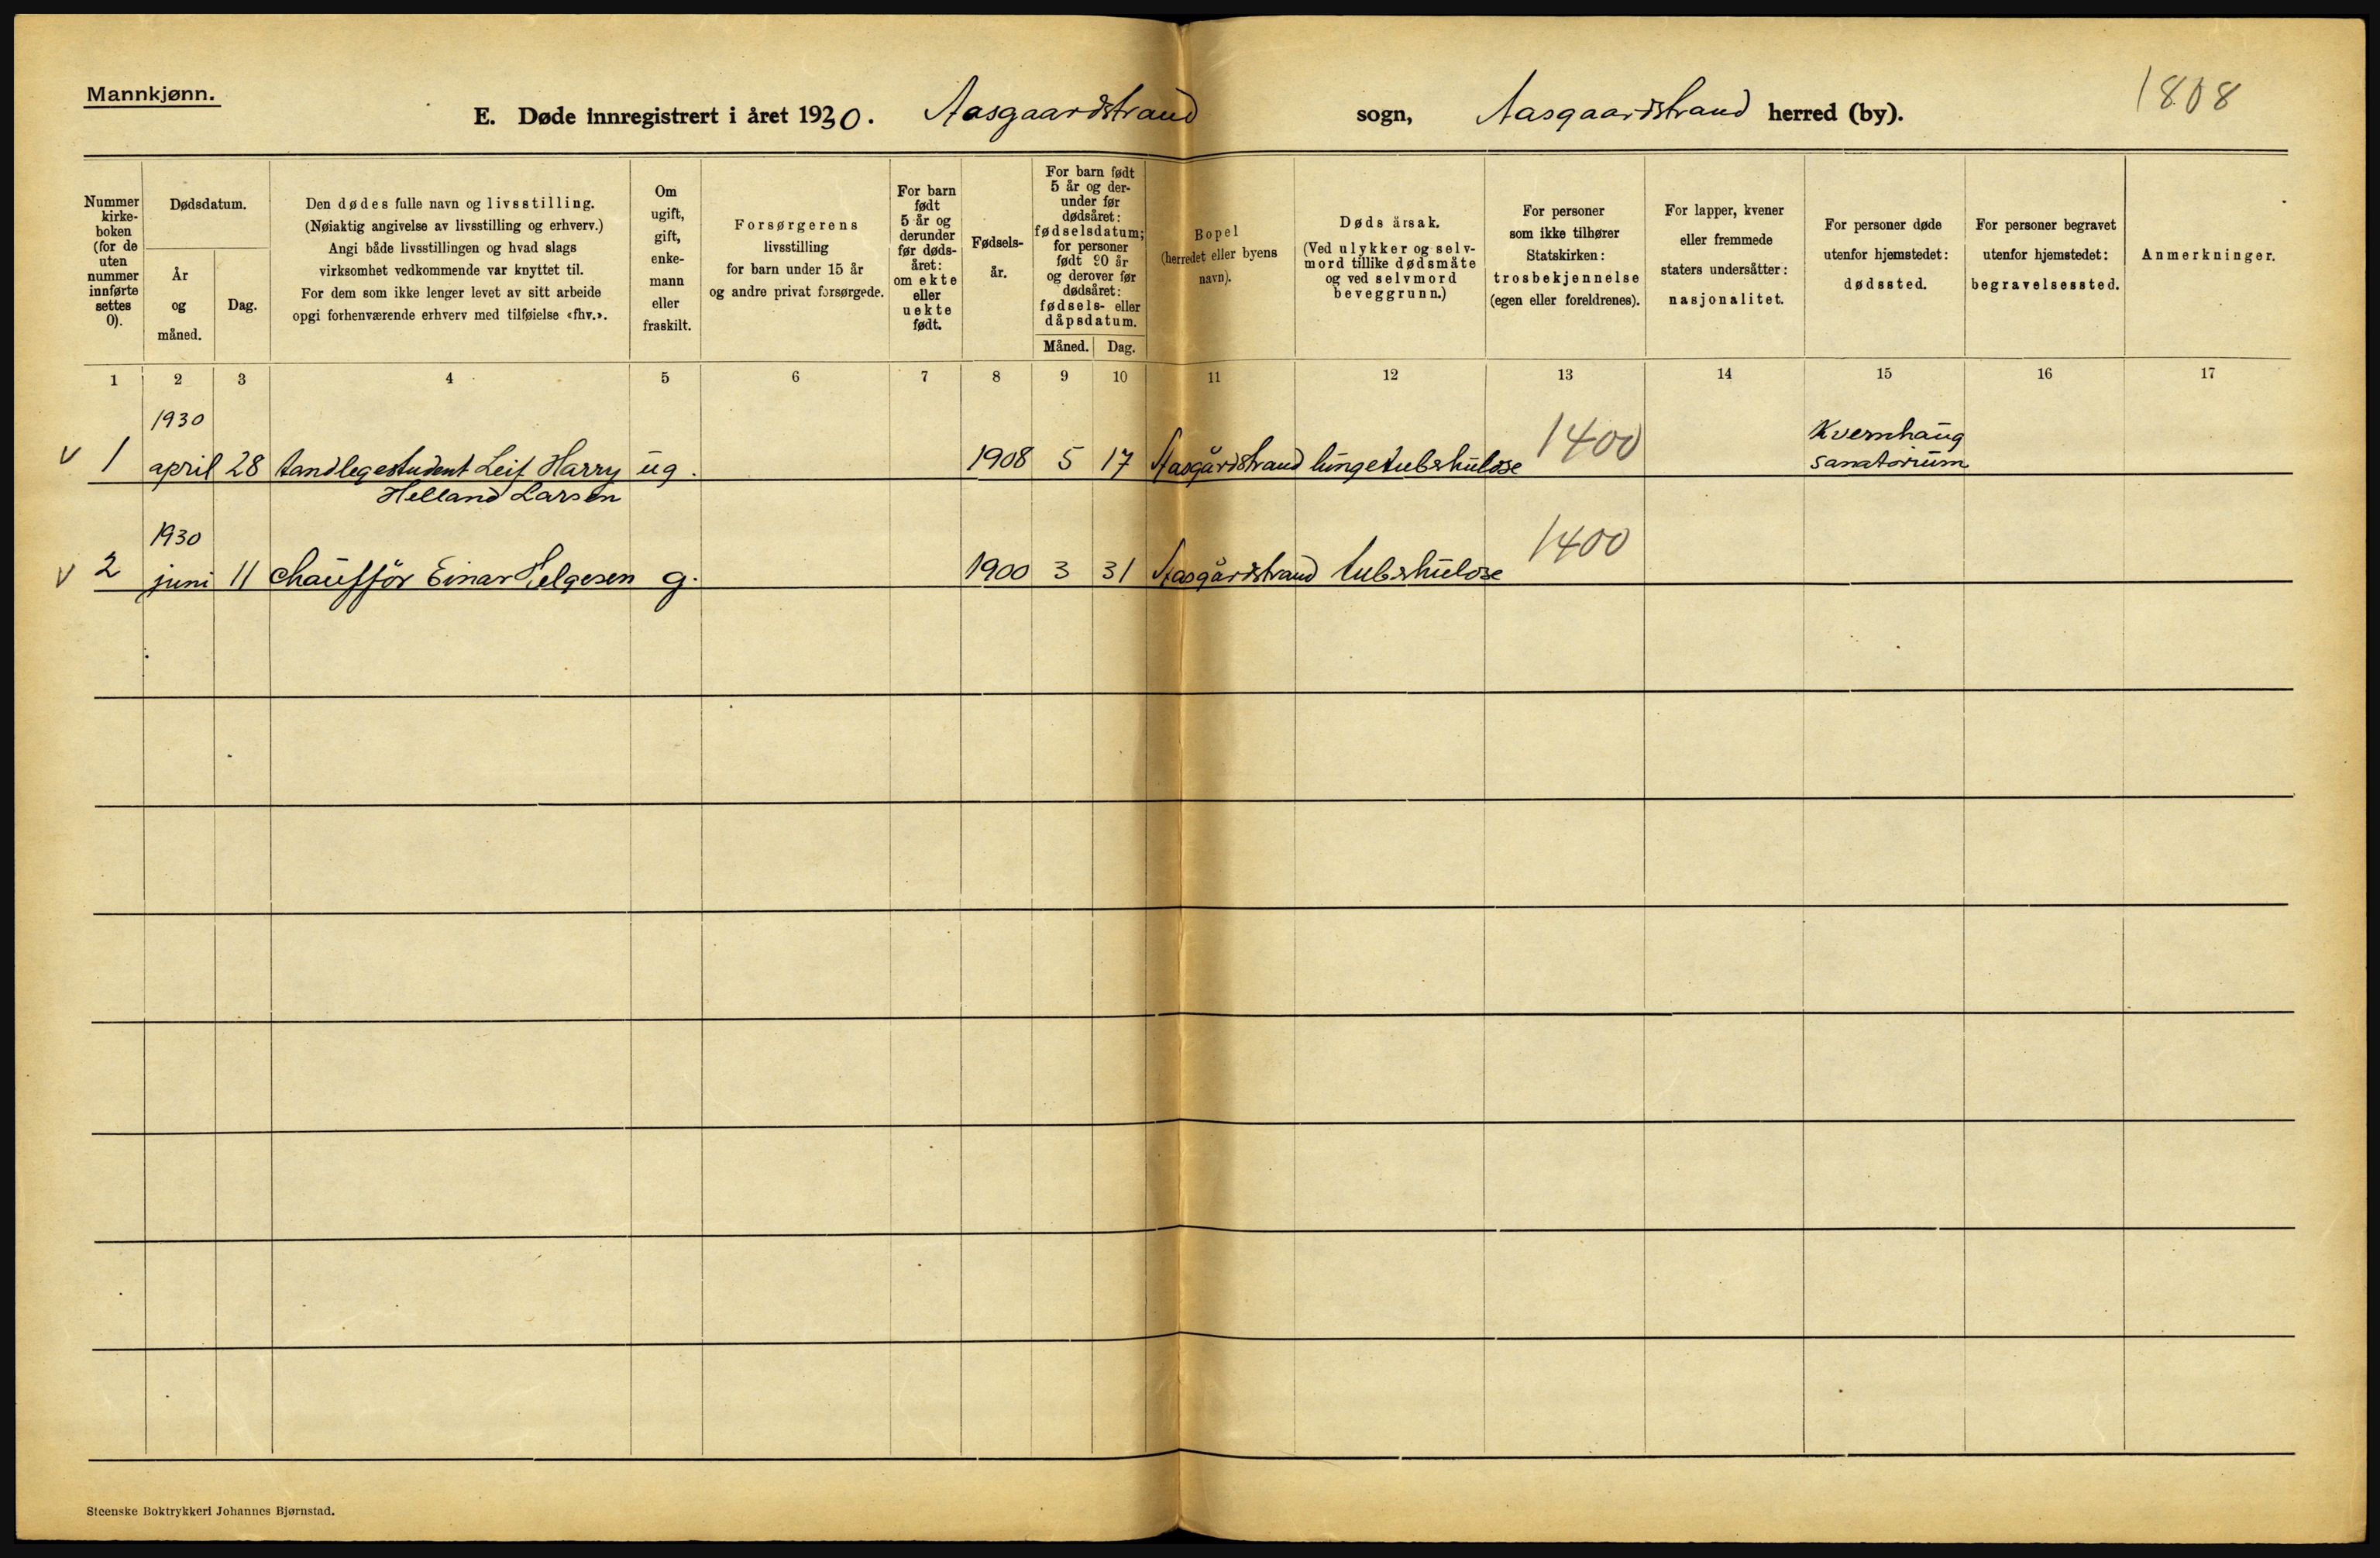 Mannkjønn.
1808
E. Døde innregistrert i året 1930. Aasgaardstrand sogn, Aasgaardstrand herred (by).
Nummer
kirke-
boken
(for de
uten
nummer
innførte
settes
0).
Dødsdatum.
År
og
måned.
Dag.
Den dødes fulle navn og livsstilling.
(Nøiaktig angivelse av livsstilling og erhverv.)
Angi både livsstillingen og hvad slags
virksomhet vedkommende var knyttet til.
For dem som ikke lenger levet av sitt arbeide
opgi forhenværende erhverv med tilføielse «fhv.».
Om
ugift,
gift,
enke-
mann
eller
fraskilt.
Forsørgerens
livsstilling
for barn under 15 år
og andre privat forsørgede.
For barn
født
5 år og
derunder
før døds-
året:
om ekte
eller
uekte
født.
Fødsels-
år.
For barn født
5 år og der-
under før
dødsåret:
fødselsdatum;
for personer
født 90 år
og derover før
dødsåret:
fødsels- eller
dåpsdatum.
Måned. Dag.
Bopel
(herredet eller byens
navn).
Døds årsak.
(Ved ulykker og selv-
mord tillike dødsmåte
og ved selvmord
beveggrunn.)
For personer
som ikke tilhører
Statskirken:
trosbekjennelse
(egen eller foreldrenes).
For lapper, kvener
eller fremmede
staters undersåtter:
nasjonalitet.
For personer døde
utenfor hjemstedet:
dødssted.
For personer begravet
utenfor hjemstedet:
begravelsessted.
Anmerkninger.
1 2 3 4 5 6 7 8 9 10 11 12 13 14 15 16 17
1930
Kvernhaug
v 1 april 28 tandlegestudent Leif Harry ug. 1908 5 17 Aasgårdstrand lungetuberkulose 1400 sanatorium
Helland Larsen
1930
v 2 juni 11 chaufför Einar Helgesen g. 1900 3 31 Aasgårdstrand tuberkulose 1400
Steenske Boktrykkeri Johannes Bjørnstad.